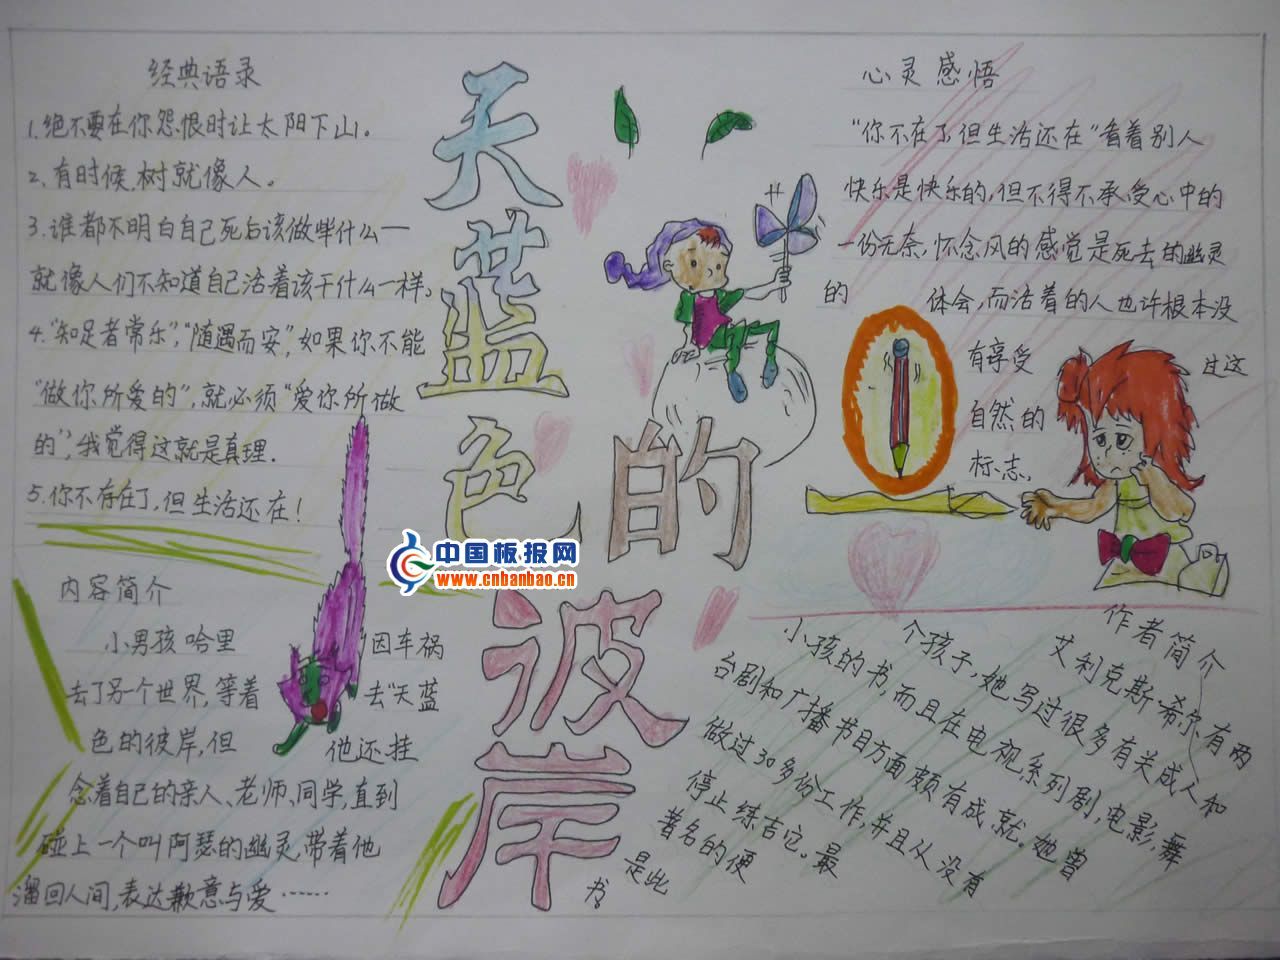 经典语录
1.绝不要在你怨恨时让太阳下山。
2、有时候,树就像人。
3.谁都不明白自己死后该做些什么一
就像人们不知道自己活着该干什么一样,
4."知足者常乐","随遇而安",如果你不能
"做你所爱的",就必须"爱你所做
的",我觉得这就是真理.
5.你不存在了,但生活还在!
内容简介
小男孩哈里
因车祸
去了另一个世界,等着
去"天蓝
色的彼岸,但
他还挂
念着自己的亲人、老师、同学,直到
碰上一个叫阿瑟的幽灵,带着他
溜回人间,表达歉意与爱……
天蓝色的彼岸
中国板报网
www.cnbanbao.cn
心灵感悟
"你不在了,但生活还在"看着别人
快乐是快乐的,但不得不承受心中的
一份无奈,怀念风的感觉是死去的幽灵
的
体会,而活着的人也许根本没
有享受
过这
自然的
标志,
作者简介
艾利克斯·希尔有两
个孩子,她写过很多有关成人和
小孩的书,而且在电视系列剧,电影,舞
台剧和广播书目方面颇有成就。她曾
做过30多份工作,并且从没有
停止练吉它。最
著名的便
是此
书。